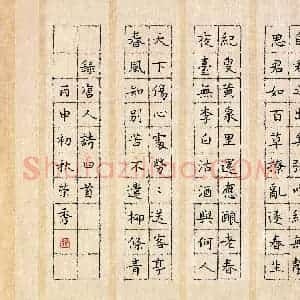 思君如百草撩亂逐春生
紀叟黃泉里還應釀老春
夜臺無李白沽酒與何人
天下傷心處勞勞送客亭
春風知別苦不遣柳條青
錄唐人詩四首
丙申初秋榮秀